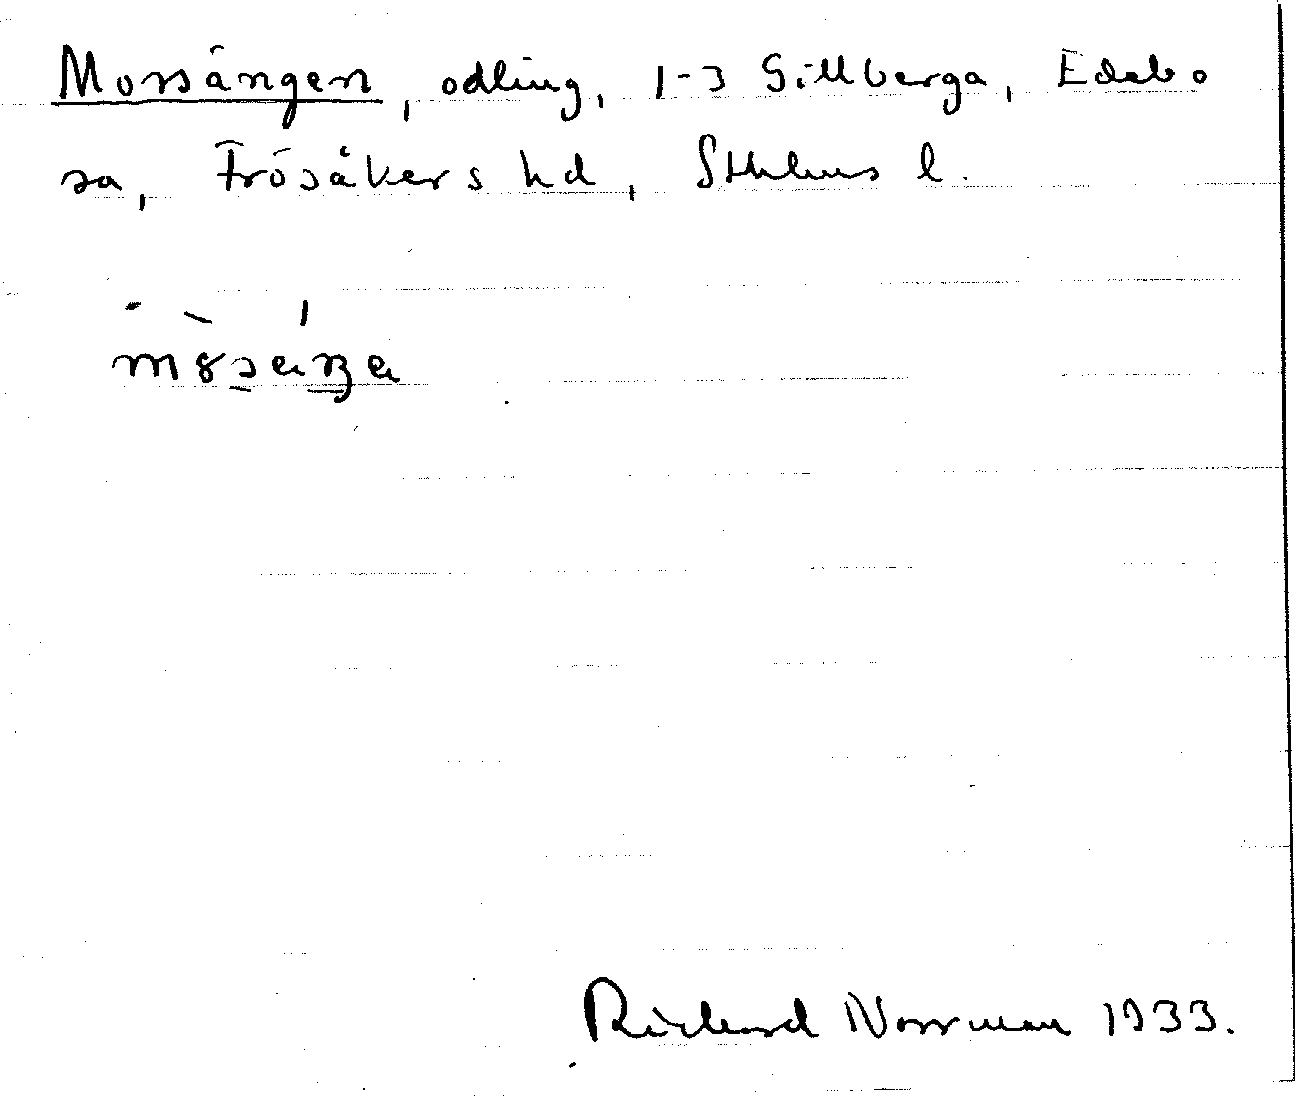 Morsängen, odling, 1-3 Gillberga, Edebo
sn, Frösåkers hd, Sthlms l.
Richard Norrman 1933.